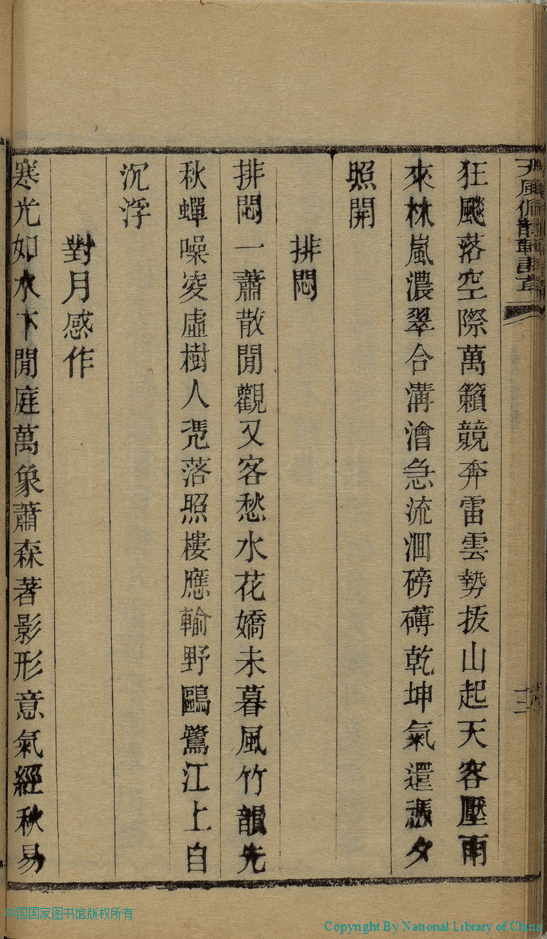 狂飈落空際萬籟競奔雷雲勢拔山起天容壓雨
來林嵐濃翠合溝澮急流洄磅礴乾坤氣還慿夕
照開
排悶
排悶一蕭散閒觀又客愁水花嬌未暮風竹韻先
秋蟬噪凌虛樹人凭落照樓應輸野鷗鷺江上自
沉浮
對月感作
寒光如水下閒庭萬象蕭森著影形意氣經秋易
中国国家图书馆版权所有
Copyright By National Library of China